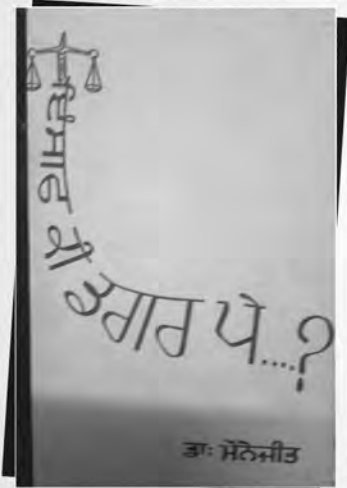 ਇੰਸਾਫ ਕੀ ਡਗਰ ਪੇ....?
ਡਾਃ ਮੋਨੋਜੀਤ